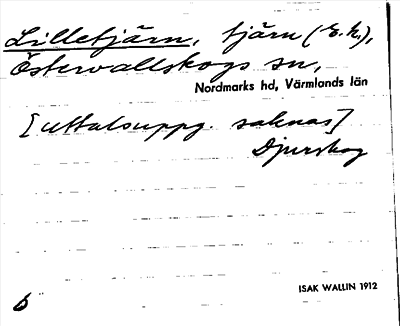 Lilletjärn, tjärn (E.k.),
Östervallskogs sn,
Nordmarks hd, Värmlands län
[uttalsuppg. saknas]
Djurskog
ISAK WALLIN 1912
6